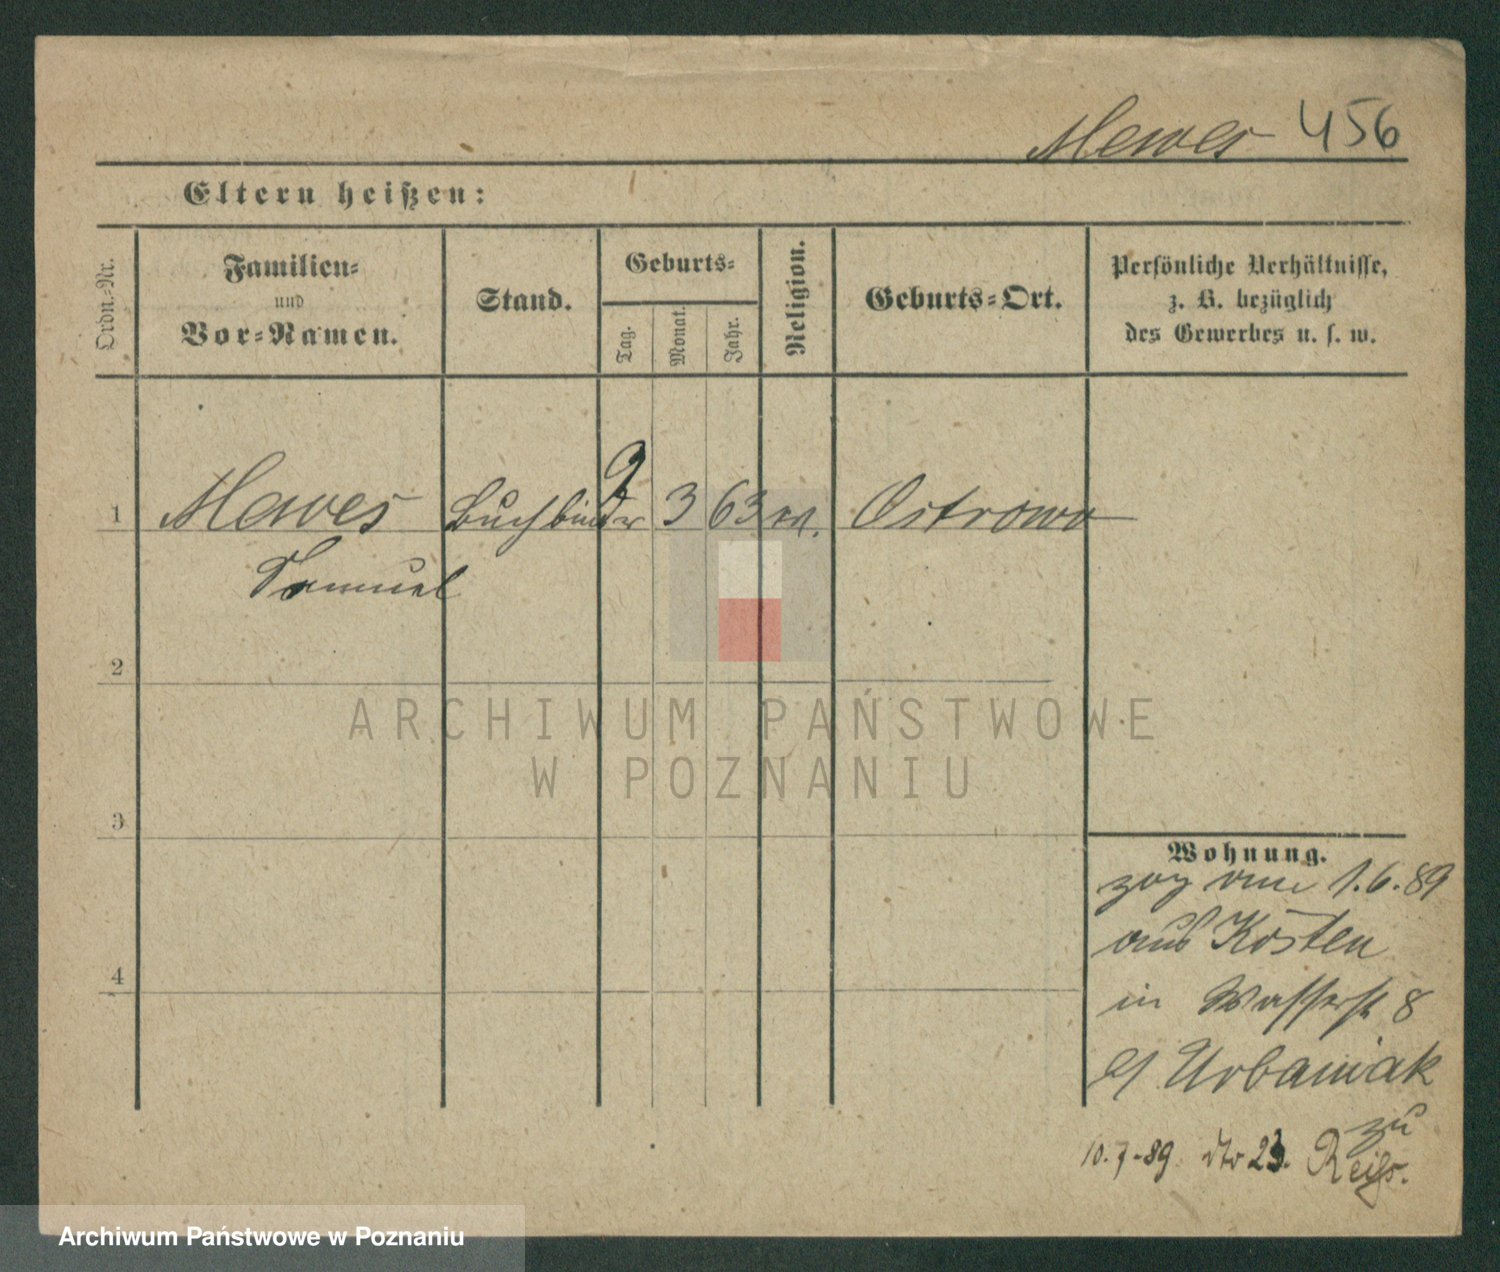 Mewes 456
Eltern heißen:
Ordn.-Nr.
Familien-
und
Vor-Namen.
Stand.
Geburts-
Tag.
Monat.
Jahr.
Religion.
Geburts-Ort.
Persönliche Verhältnisse,
z. B. bezüglich
des Gewerbes u. s. w.
1 Mewes Buchbinder 9 3 63 Ostrowo
Samuel
2
3
4
ARCHIWUM PAŃSTWOWE
W POZNANIU
Wohnung.
zog am 1.6.89
aus Kosten
in Wasserst 8
Urbaniak
zu
10.7.89 dto 23.
Archiwum Państwowe w Poznaniu